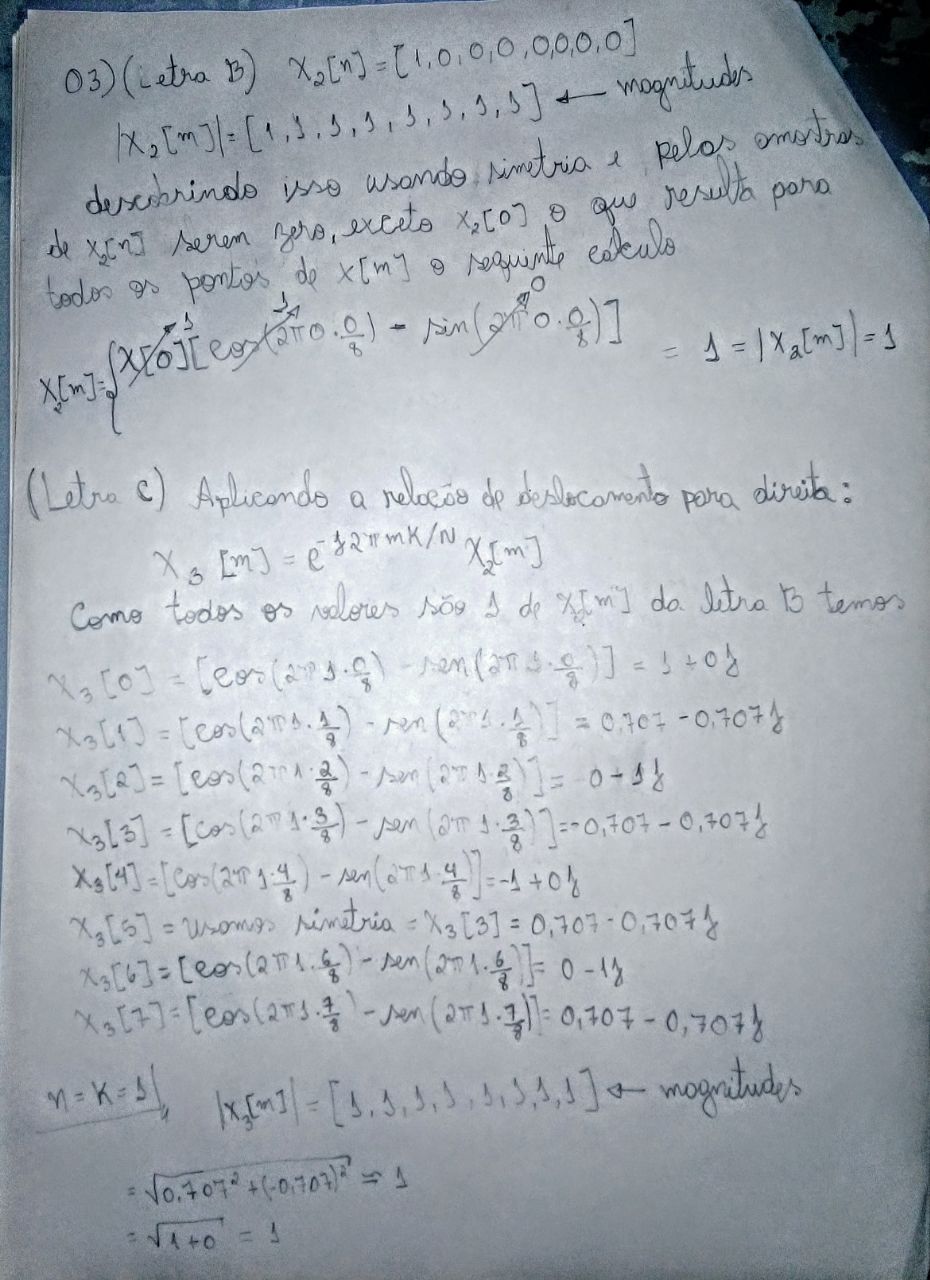 03) (Letra B) X₂[n] = [1,0,0,0,0,0,0,0]
|X₂[m]| = [1,1,1,1,1,1,1,1] ← magnitudes
descobrindo isso usando simetria e pelas amostras
de x₂[n] serem zero, exceto x₂[0] o que resulta para
todos os pontos de x[m] o seguinte calculo
X₂[m] = { X[0] [cos(2π0·0/8) - sin(2π0·0/8)] = 1 = |X₂[m]| = 1
1 1 0
(Letra C) Aplicando a relação de deslocamento para direita:
X₃[m] = e^-j2πmK/N X₂[m]
Como todos os valores são 1 de X₂[m] da letra B temos
X₃[0] = [cos(2π1·0/8) - sen(2π1·0/8)] = 1+0j
X₃[1] = [cos(2π1·1/8) - sen(2π1·1/8)] = 0,707 - 0,707j
X₃[2] = [cos(2π1·2/8) - sen(2π1·2/8)] = 0-1j
X₃[3] = [cos(2π1·3/8) - sen(2π1·3/8)] = -0,707 - 0,707j
X₃[4] = [cos(2π1·4/8) - sen(2π1·4/8)] = -1+0j
X₃[5] = usamos simetria = X₃[3] = 0,707 - 0,707j
X₃[6] = [cos(2π1·6/8) - sen(2π1·6/8)] = 0-1j
X₃[7] = [cos(2π1·7/8) - sen(2π1·7/8)] = 0,707 - 0,707j
n = K = 1 |X₃[m]| = [1,1,1,1,1,1,1,1] ← magnitudes
= √0,707² + (-0,707)² = 1
= √1+0 = 1